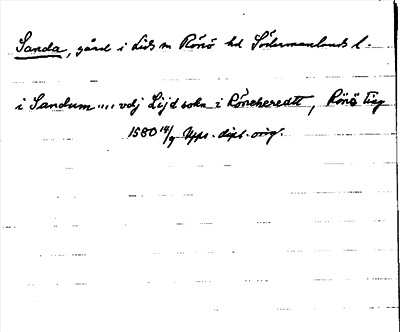 Sanda, gård i Lids sn Rönö hd Södermanlands l.
i Sandum ... vdj Lijd sokn i Röneheredtt, Rönö Ting
1580 14/9 Upps. dipl. orig.